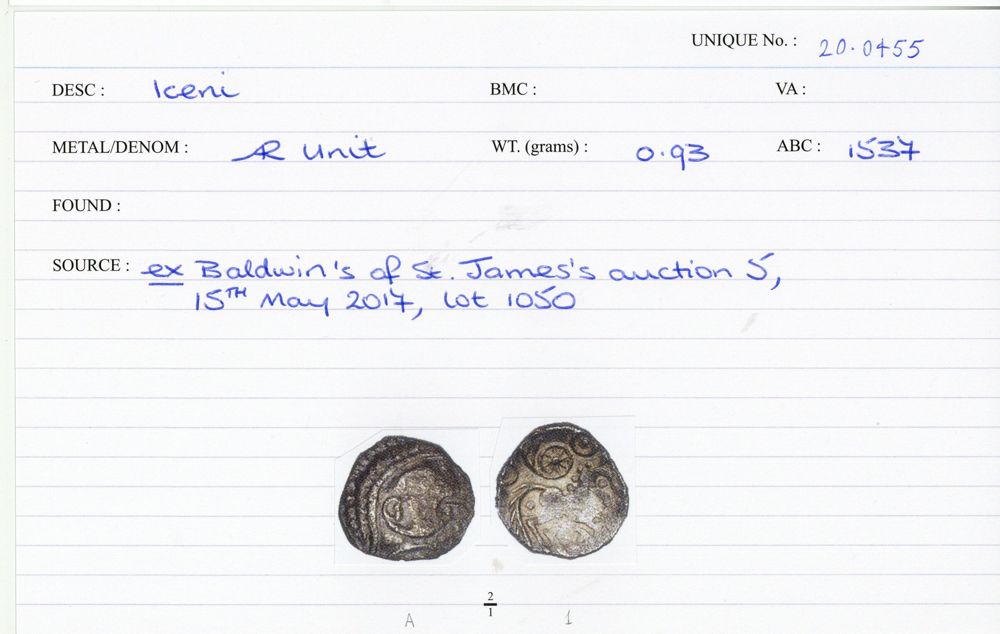 UNIQUE No. : 20.0455
DESC : Iceni BMC : VA :
METAL/DENOM : AR Unit WT. (grams) : 0.93 ABC : 1537
FOUND :
SOURCE : ex Baldwin's of St. James's auction 5,
15TH May 2017, lot 1050
2
1
A 1